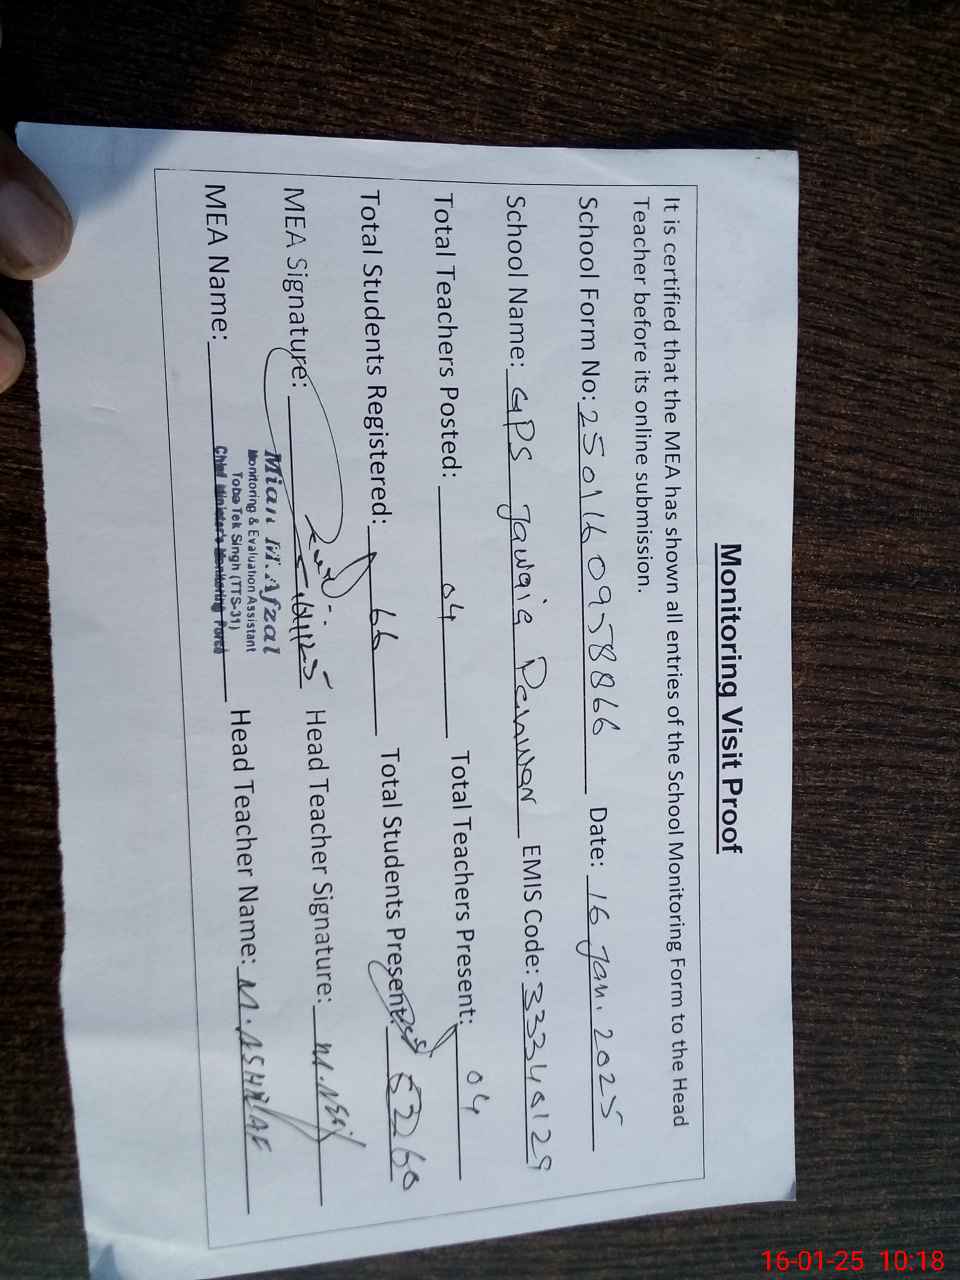 Monitoring Visit Proof
It is certified that the MEA has shown all entries of the School Monitoring Form to the Head
Teacher before its online submission.
School Form No: 2501160958866 Date: 16 Jan. 2025
School Name: GPS EMIS Code: 33340129
Total Teachers Posted: 04 Total Teachers Present: 04
Total Students Registered: 66 Total Students Present: 60
MEA Signature: Head Teacher Signature:
MEA Name: Head Teacher Name: M. ASHRAF
Mian M. Afzal
Monitoring & Evaluation Assistant
Toba Tek Singh (TTS-31)
Chief Minister's Monitoring Force
16-01-25 10:18